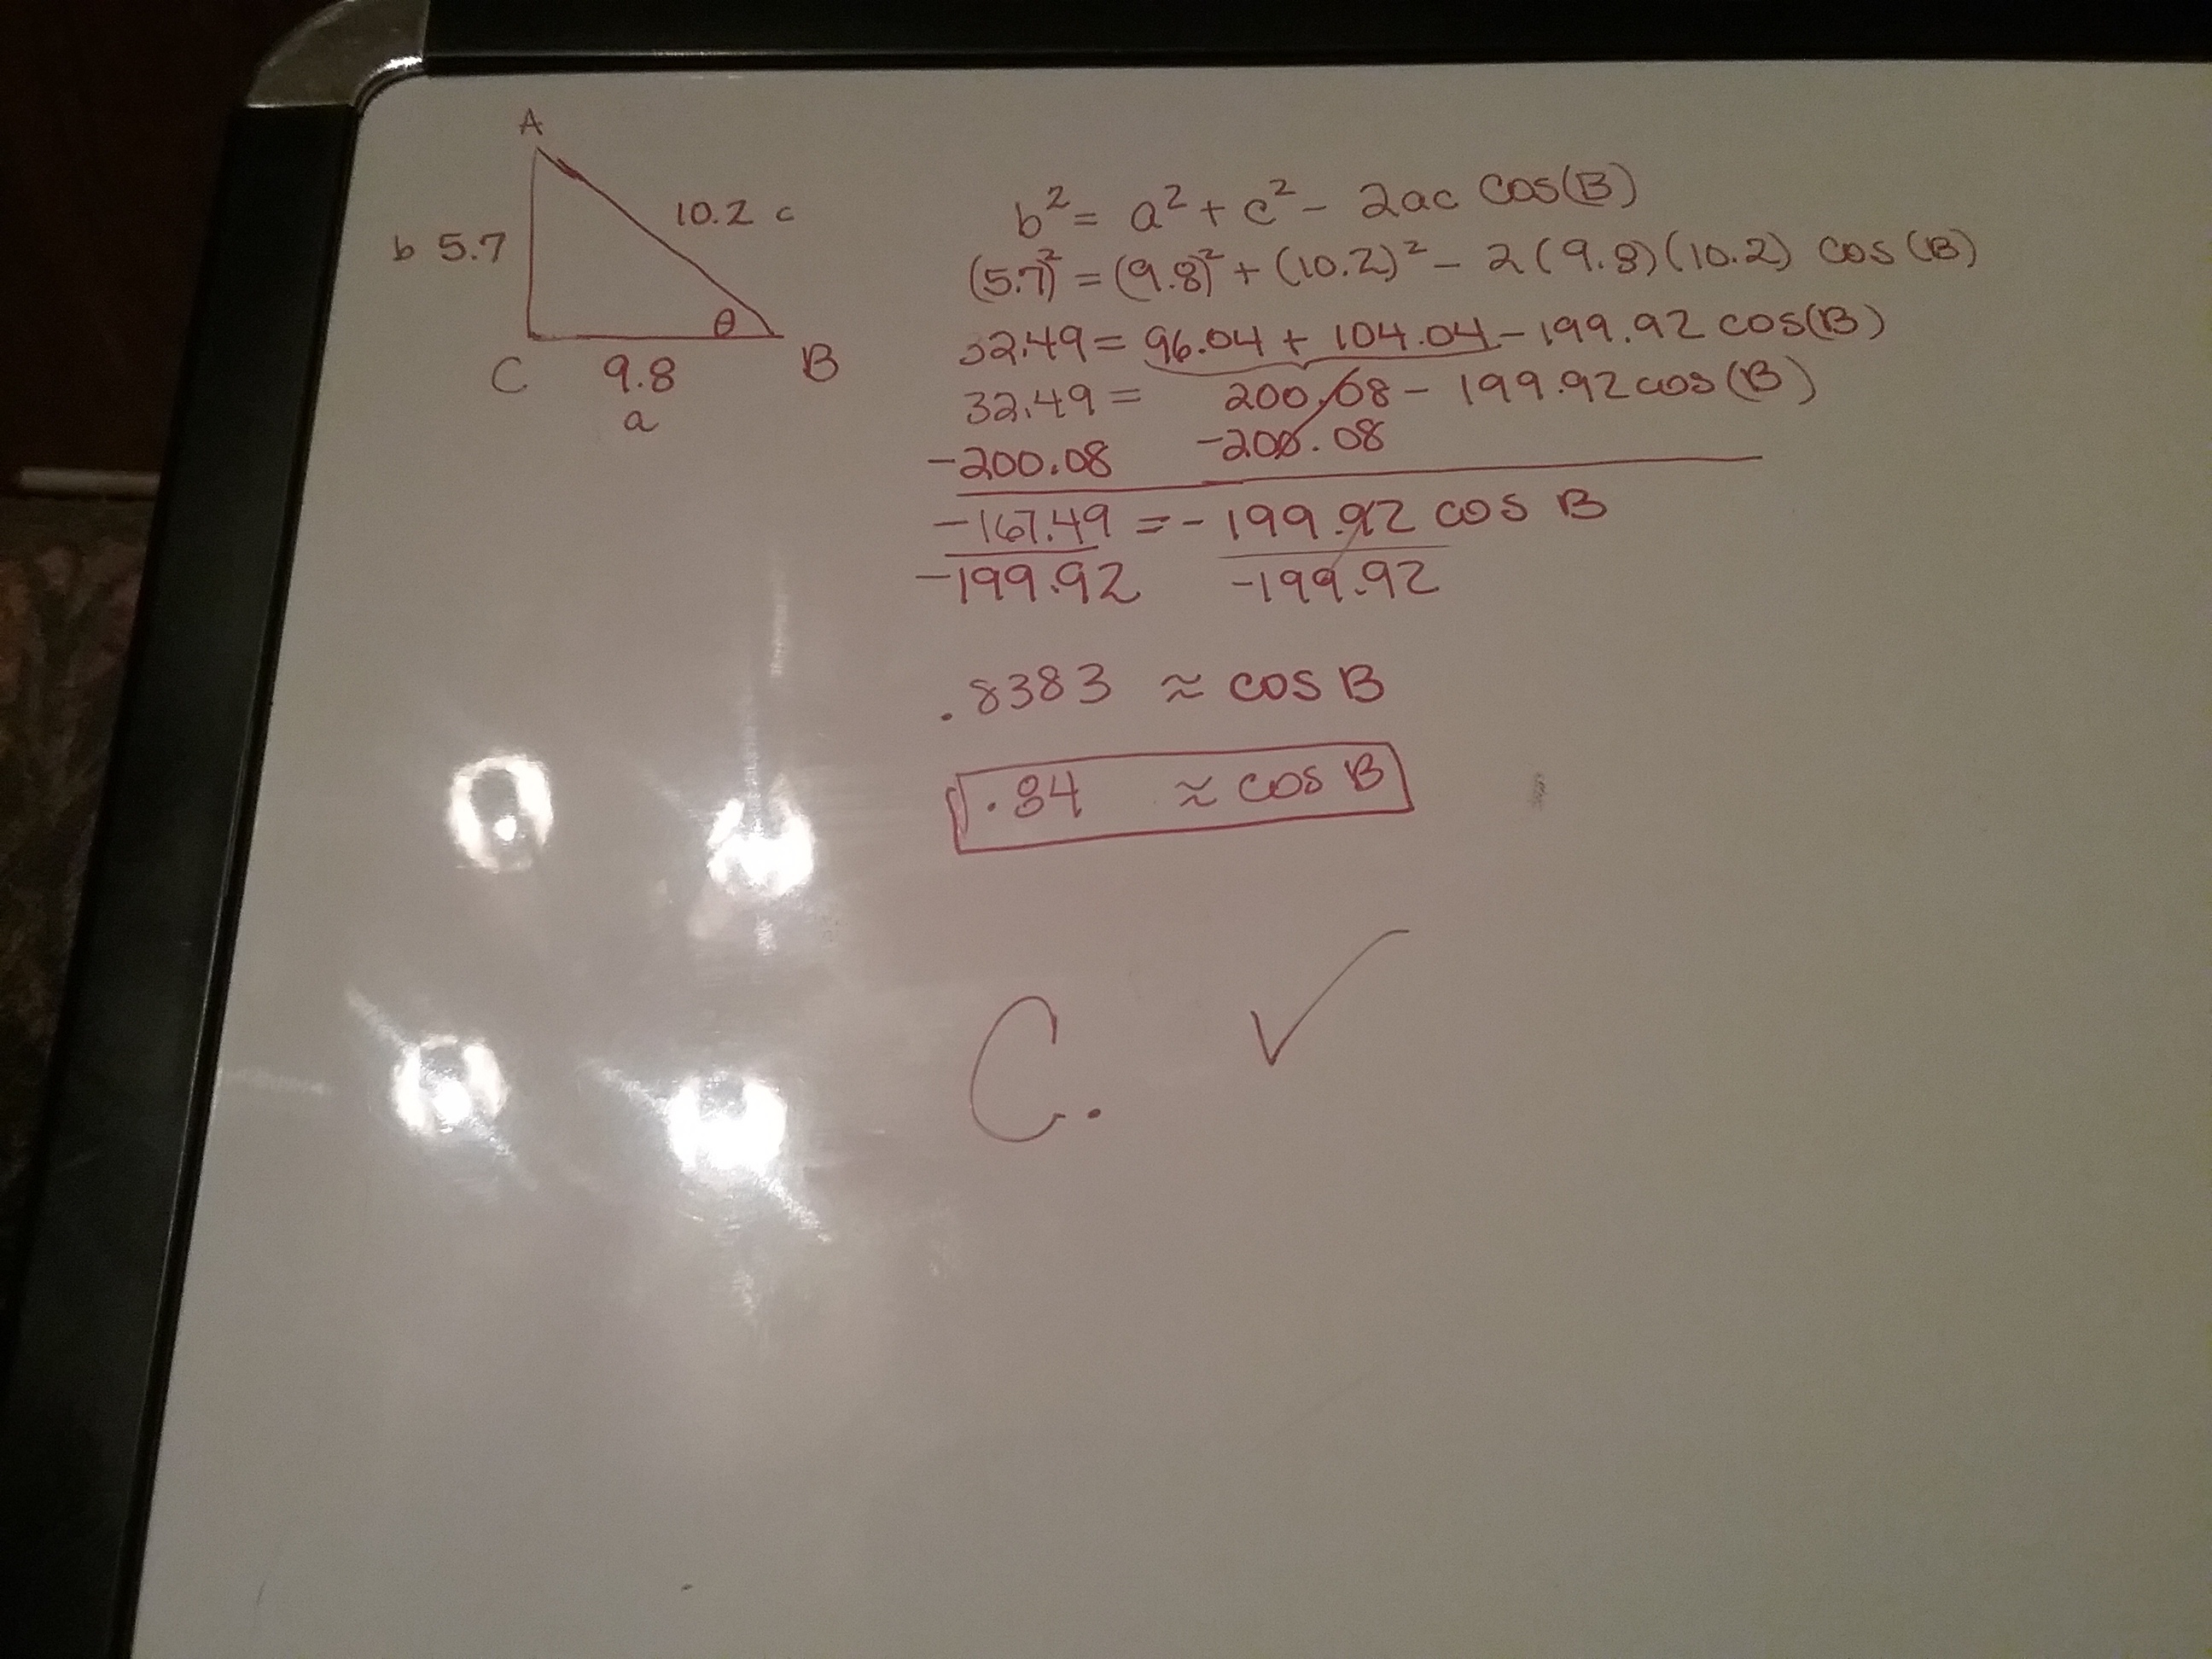 A
b 5.7
10.2 c
θ
C
9.8
B
a
b² = a² + c² - 2ac cos(B)
(5.7)² = (9.8)² + (10.2)² - 2(9.8)(10.2) cos(B)
32.49 = 96.04 + 104.04 - 199.92 cos(B)
32.49 = 200.08 - 199.92 cos(B)
-200.08 -200.08
-167.49 = -199.92 cos B
-199.92 -199.92
.8383 ≈ cos B
.84 ≈ cos B
C. ✓